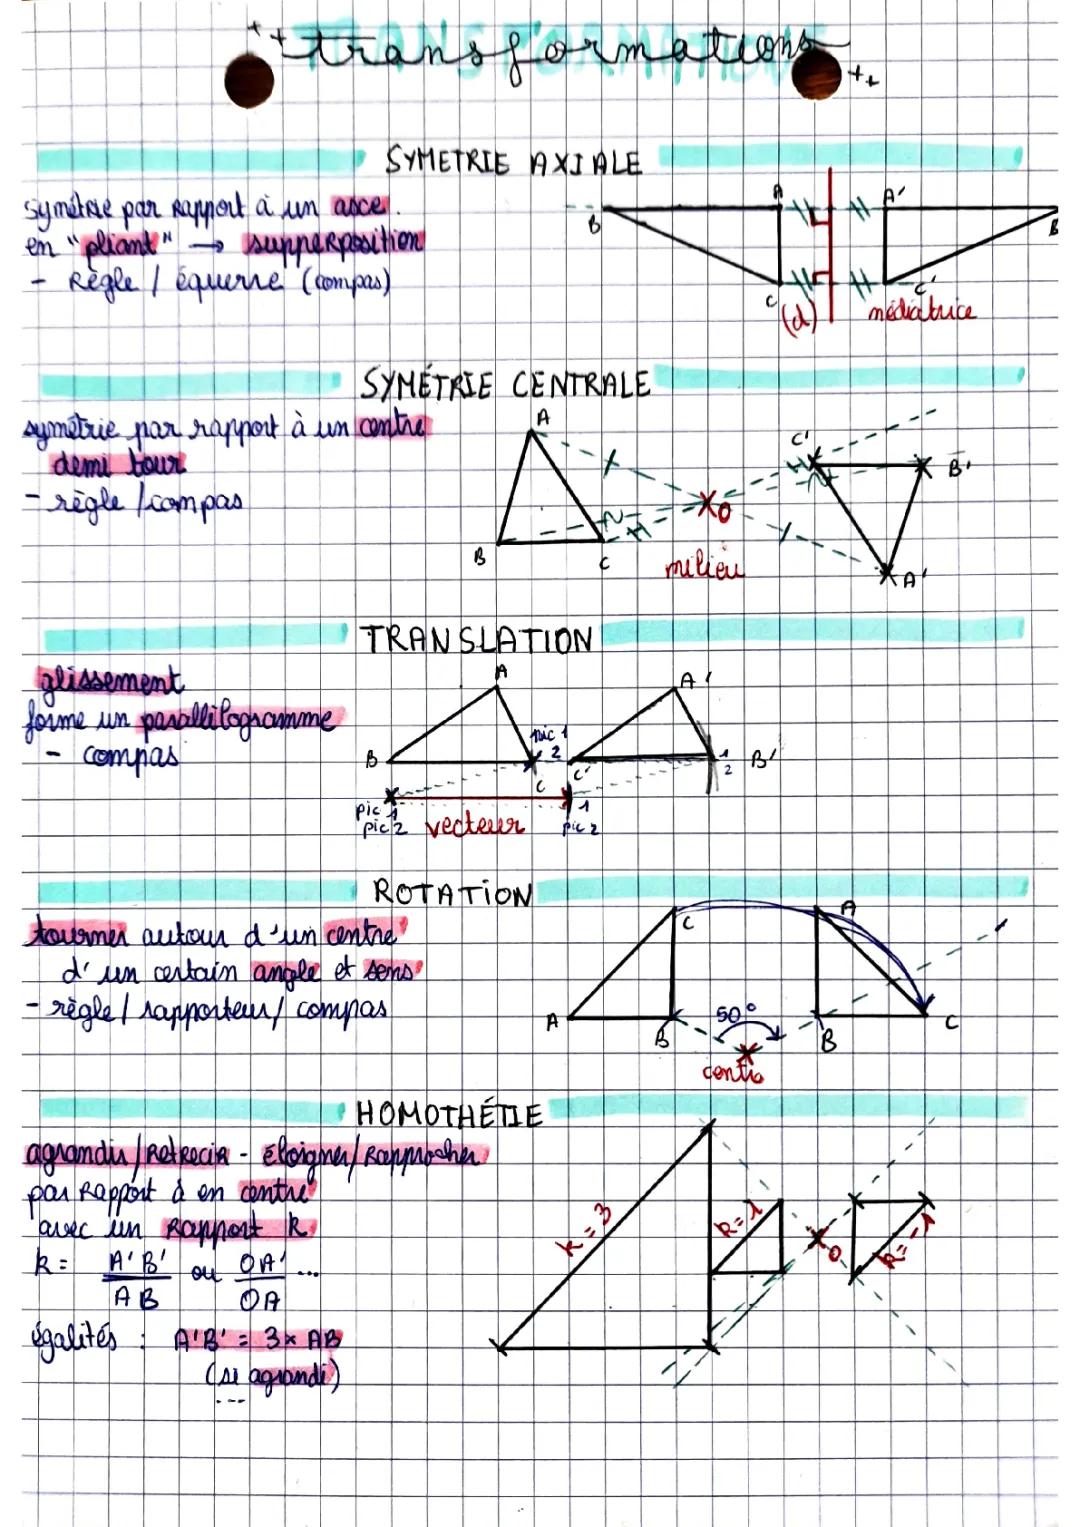 transformations
SYMETRIE AXIALE
symétrie par rapport à un axe.
en "pliant" → supperposition
- Règle / équerre (compas)
B A A' B
C (d) C' médiatrice
SYMÉTRIE CENTRALE
symétrie par rapport à un centre
demi tour
- règle / compas
A C' B'
O
B C milieu A'
TRANSLATION
glissement
forme un parallélogramme
- compas
A A'
B pic 1 2 C C' 1 2 B'
pic 1 pic 2 vecteur 1 pic 2
ROTATION
tourner autour d'un centre
d'un certain angle et sens
- règle / rapporteur / compas
C A
A B 50° B C
centre
HOMOTHÉTIE
agrandir / Retrecir - éloigner / Rapprocher
par Rapport à en centre
avec un Rapport k
k = A'B' / AB ou OA' / OA ...
égalités : A'B' = 3 × AB
(si agrandi)
...
k = 3 k = 1 O k = -1